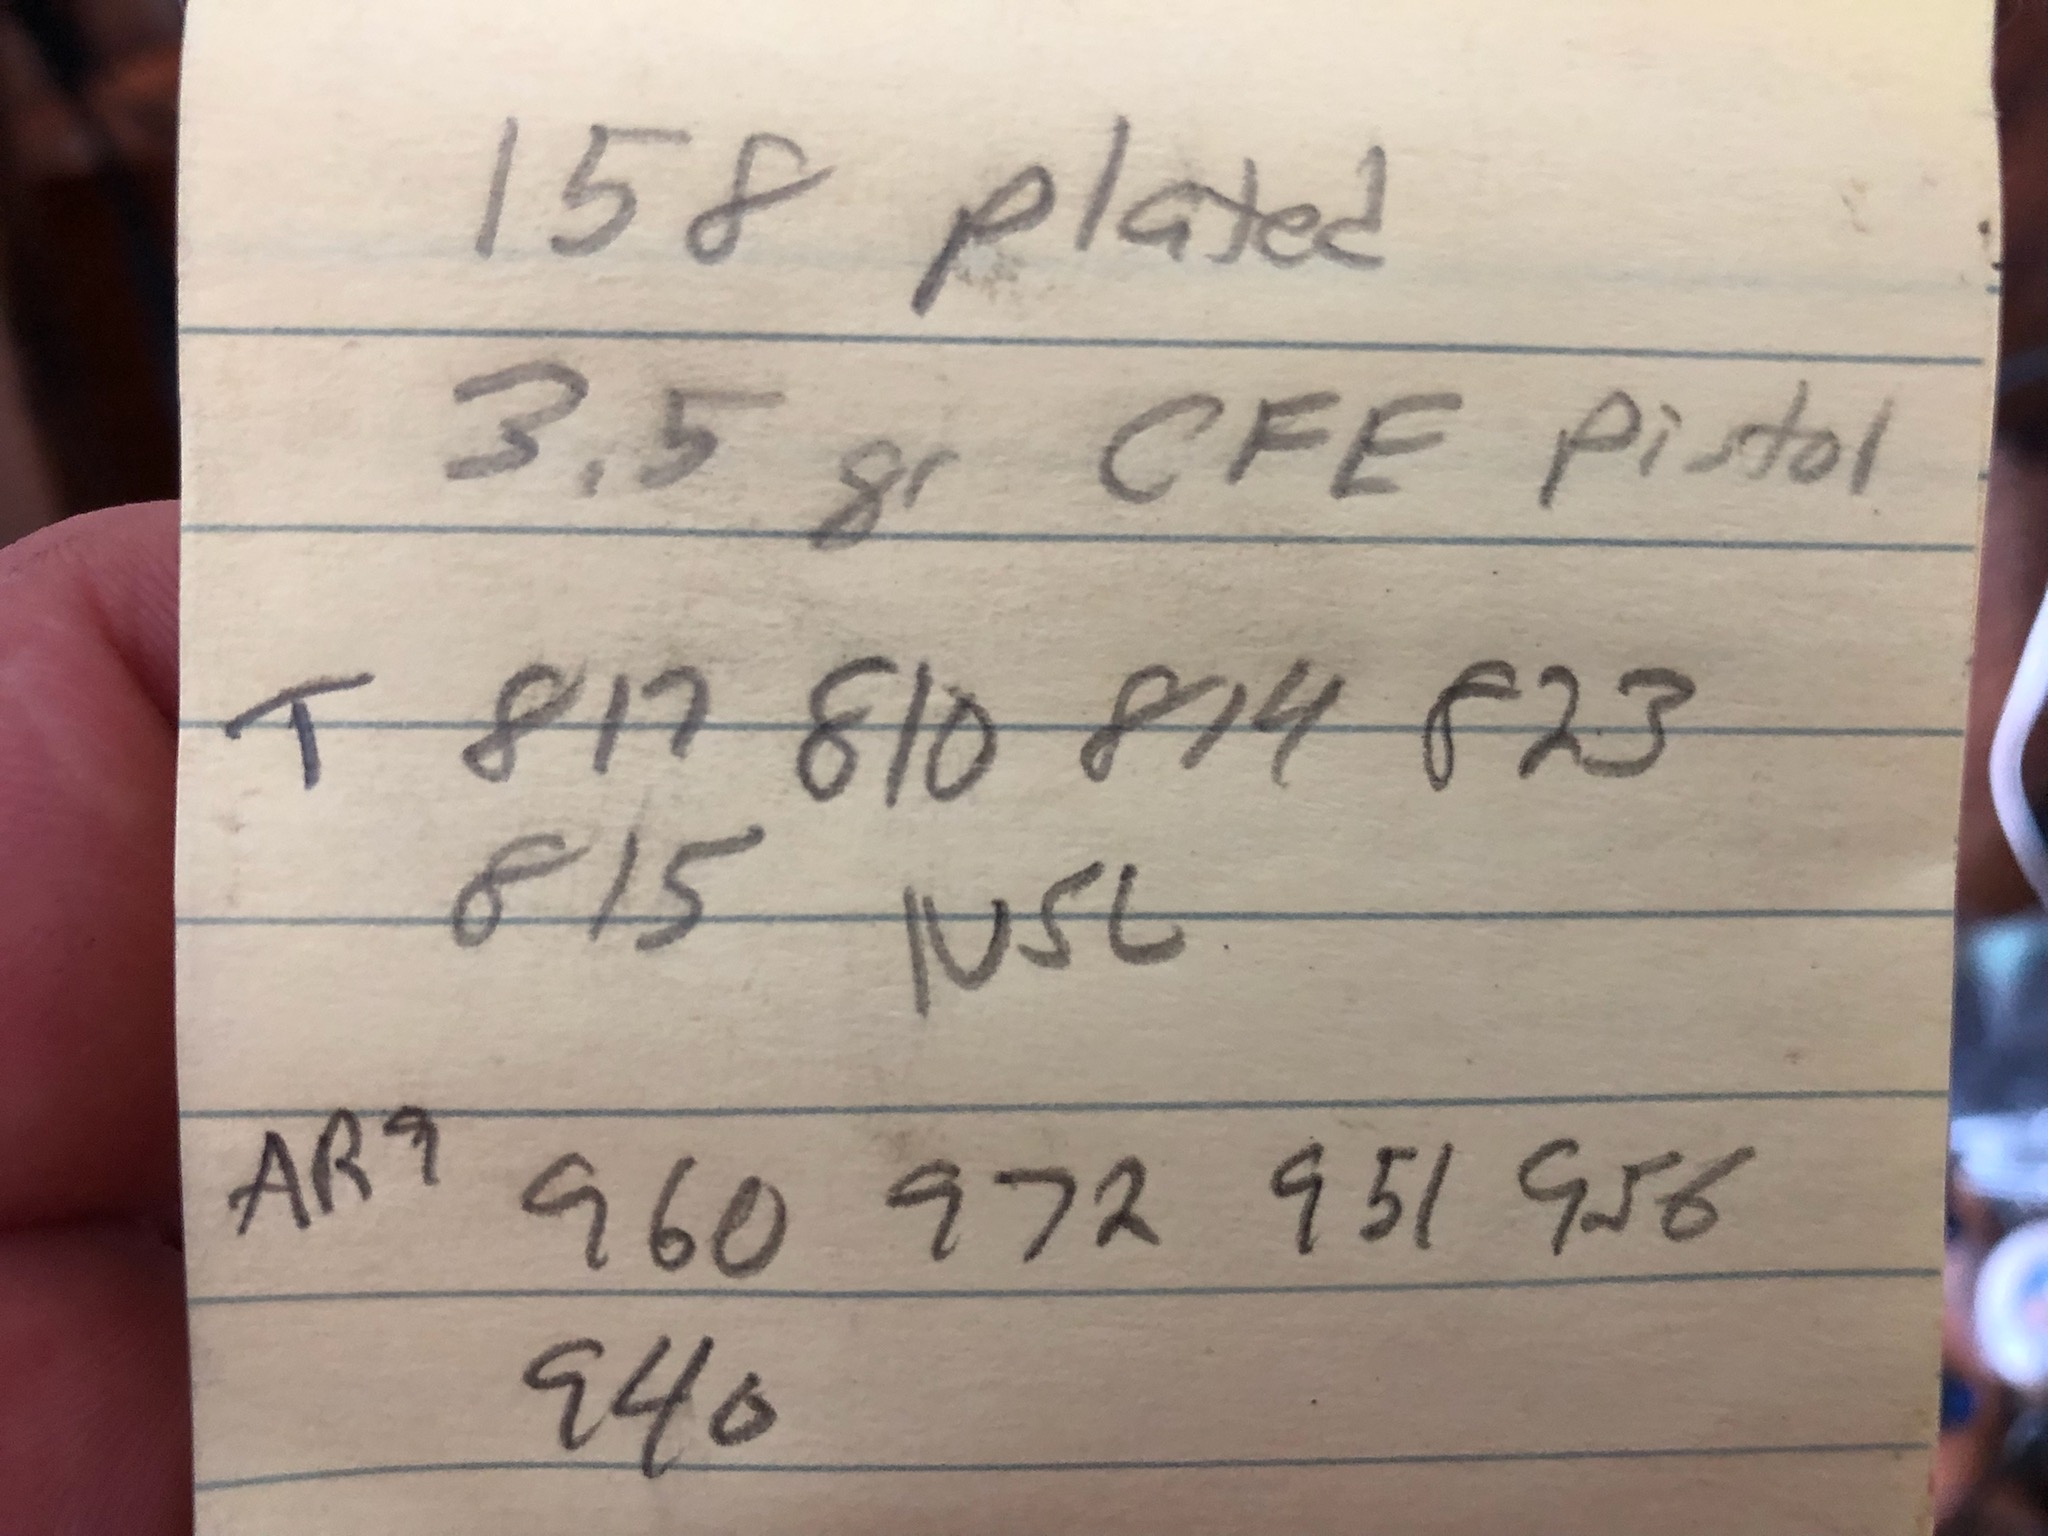 158 plated
3.5 gr CFE Pistol
T 817 810 814 823
815
AR9 960 972 951 956
940